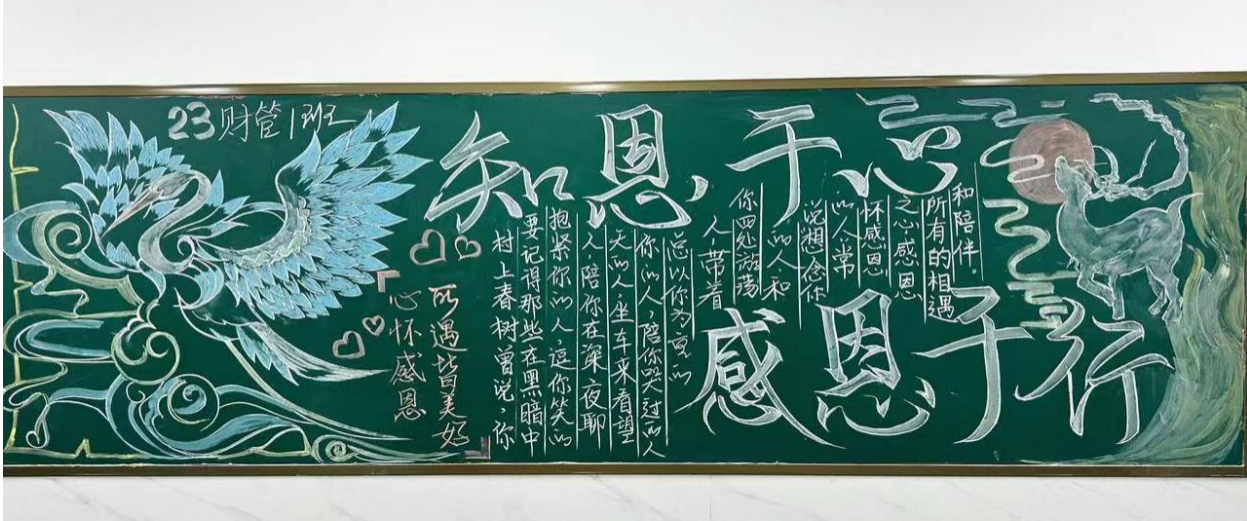 23财管1班
知恩于心
感恩于行
心怀感恩
所遇皆美好
村上春树曾说,你
要记得那些在黑暗中
抱紧你的人,逗你笑的
人,陪你在深夜聊
天的人,坐车来看望
你的人,陪你哭过的人
总以你为重的
人,带着
你四处游荡
的人和
说想念你
的人常
怀感恩
之心感恩
所有的相遇
和陪伴。